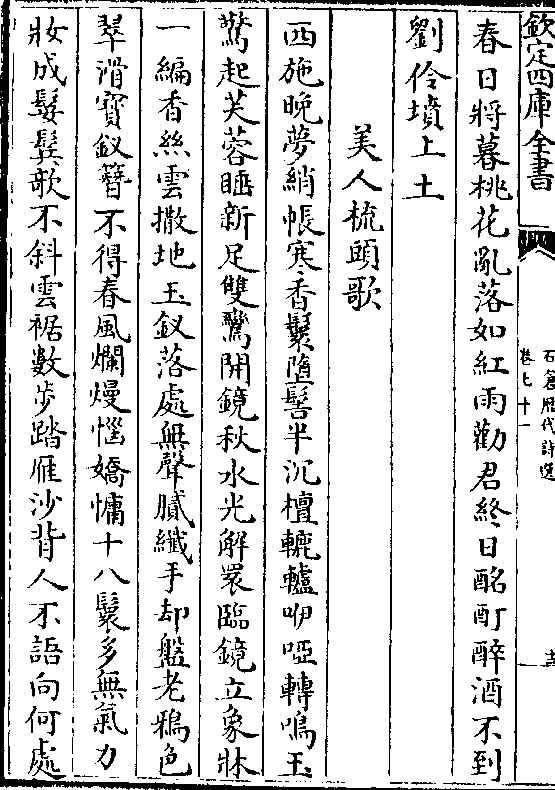 欽定四庫全書
石倉歷代詩選
卷七十一
十二
春日將暮桃花亂落如紅雨勸君終日酩酊醉酒不到
劉伶墳上土
美人梳頭歌
西施晚夢綃帳寒香鬟墮髻半沉檀轆轤咿啞轉鳴玉
驚起芙蓉睡新足雙鸞開鏡秋水光解鬟臨鏡立象牀
一編香絲雲撒地玉釵落處無聲膩纖手却盤老鴉色
翠滑寶釵簪不得春風爛熳惱嬌慵十八鬟多無氣力
妝成鬖鬌欹不斜雲裾數步踏雁沙背人不語向何處